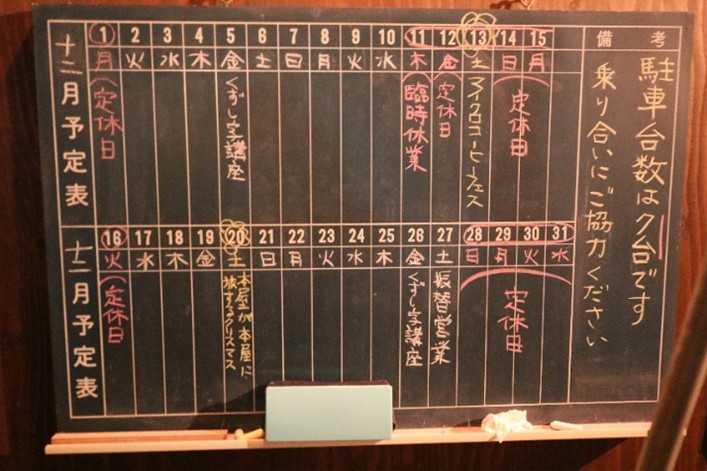 十二月予定表
1 2 3 4 5 6 7 8 9 10 11 12 13 14 15
月 火 水 木 金 土 日 月 火 水 木 金 土 日 月
定休日
くずし字講座
臨時休業
定休日
マイクロコーヒーフェス
定休日
備考
駐車台数は7台です
乗り合いにご協力ください
十二月予定表
16 17 18 19 20 21 22 23 24 25 26 27 28 29 30 31
火 水 木 金 土 日 月 火 水 木 金 土 日 月 火 水
定休日
本屋が本屋に
旅するクリスマス
くずし字講座
振替営業
定休日